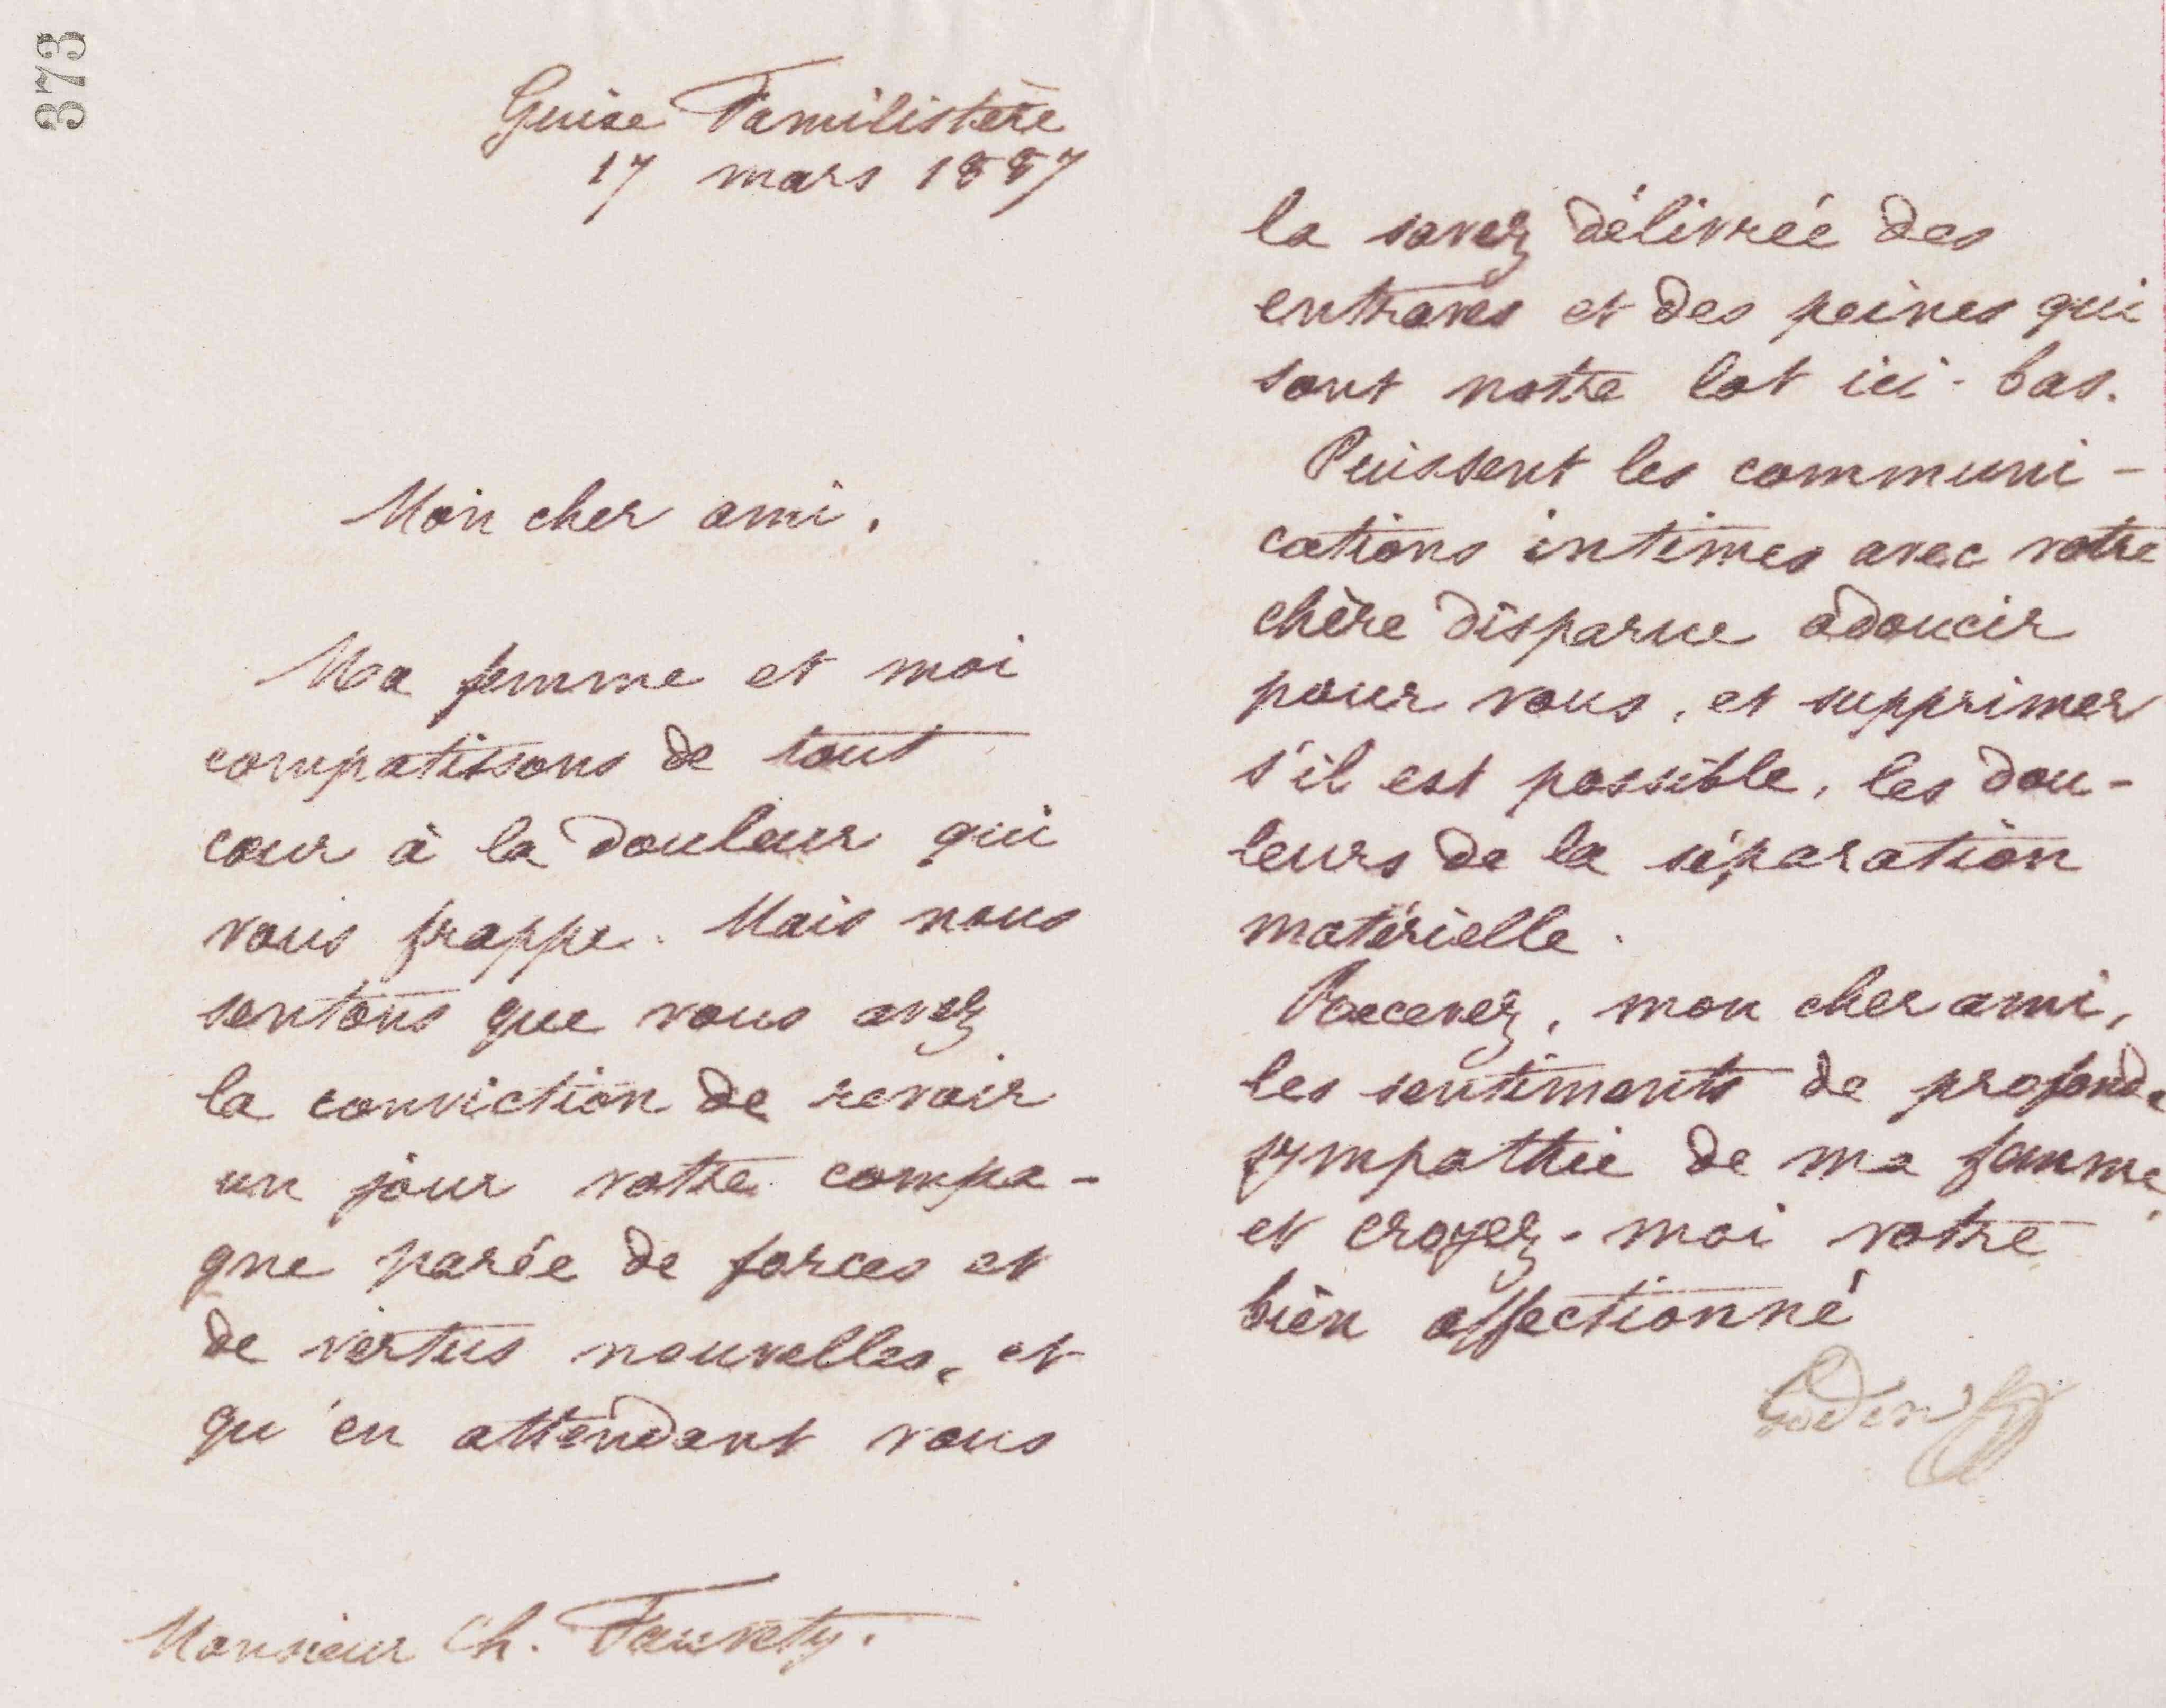 373
Guise Familistère
17 mars 1887
Mon cher ami,
Ma femme et moi
compatissons de tout
cœur à la douleur qui
vous frappe. Mais nous
sentons que vous avez
la conviction de revoir
un jour votre compa-
gne parée de forces et
de vertus nouvelles, et
qu'en attendant vous
Monsieur Ch. Fauvety.
la savez délivrée des
entraves et des peines qui
sont notre lot ici-bas.
Puissent les communi-
cations intimes avec votre
chère disparue adoucir
pour vous, et supprimer
s'il est possible, les dou-
leurs de la séparation
matérielle.
Recevez, mon cher ami,
les sentiments de profonde
sympathie de ma femme
et croyez-moi votre
bien affectionné
Godin